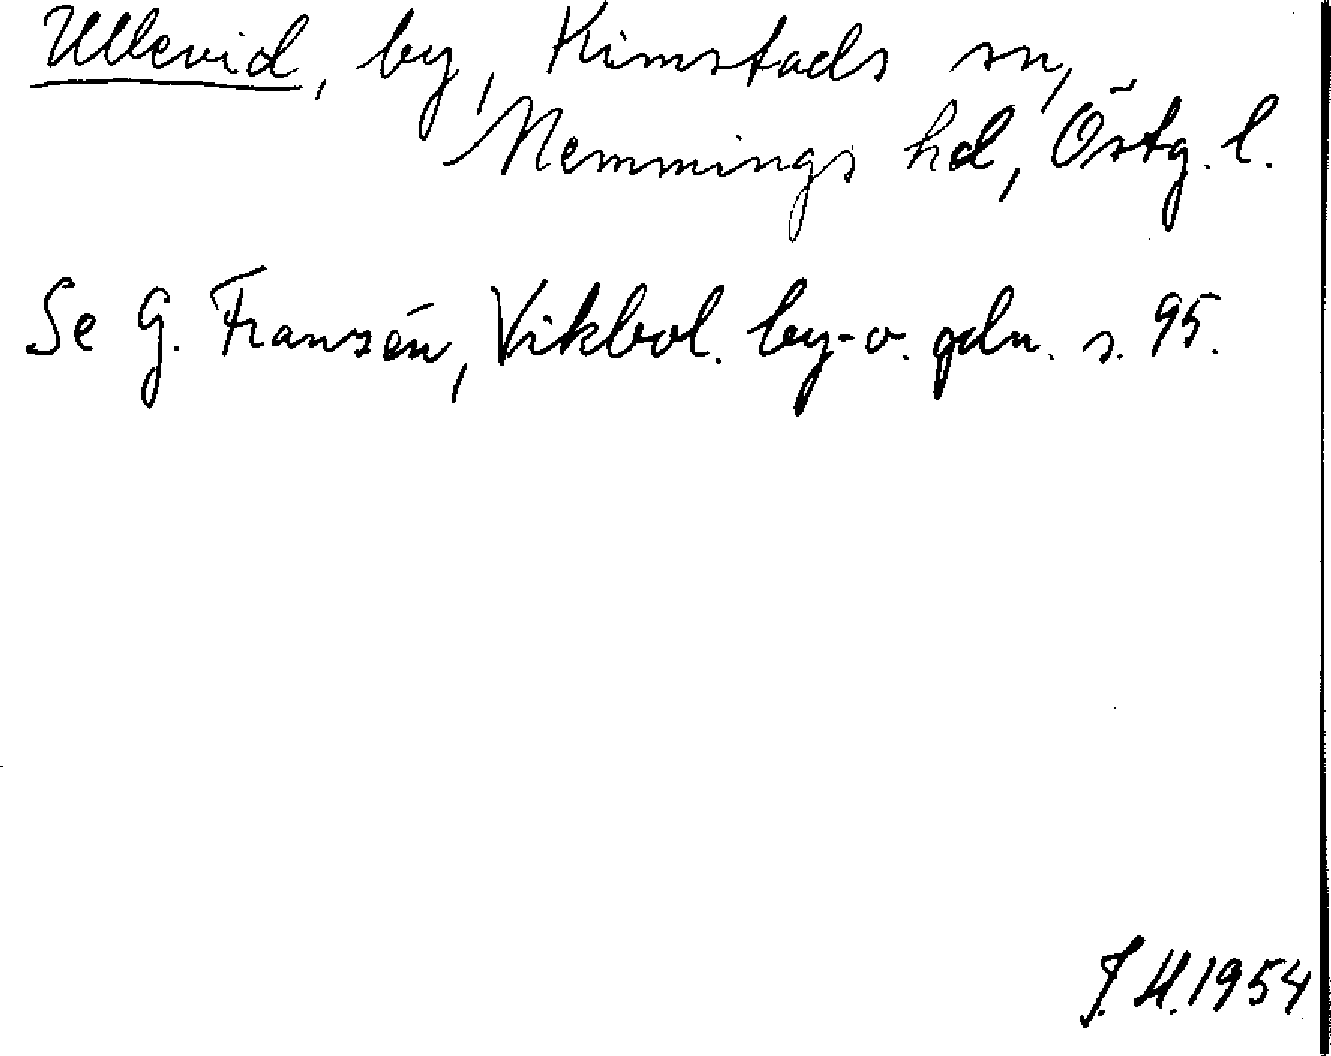 Ullevid, by, Kimstads sn,
Memmings hd, Östg. l.
Se G. Franzén, Vikbol. by- o. gdn. s. 95.
J. H. 1954